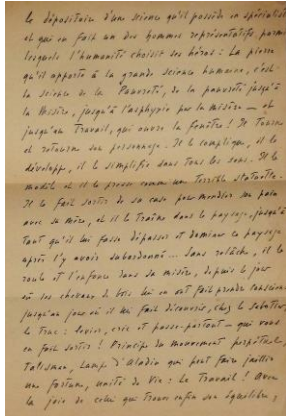 le dépositaire d'une science qu'il possède en spécialiste
et qui en fait un des hommes représentatifs parmi
lesquels l'humanité choisit ses héros : La pierre
qu'il apporte à la grande science humaine, c'est
la science de la Pauvreté, de la pauvreté jusqu'à
la Misère, jusqu'à l'asphyxie par la misère — et
jusqu'au Travail, qui ouvre la fenêtre ! Il tourne
et retourne son personnage. Il le complique, il le
développe, il le simplifie dans tous les sens. Il le
modèle et il le presse comme une terrible statuette.
Il le fait sortir de sa case pour mendier son pain
avec sa mère, et il le traîne dans le paysage, jusqu'à
tant qu'il lui fasse dépasser et dominer ce paysage
après l'y avoir subordonné... Sans relâche, il le
roule et l'enfonce dans sa misère, depuis le jour
où les chevaux de bois lui en ont fait prendre conscience
jusqu'au jour où il lui fait découvrir, chez le sabotier,
le truc : levier, cric et passe-partout — qui vous
en fait sortir ! Principe du mouvement perpétuel,
Talisman, Lampe d'Aladin qui peut faire jaillir
une fortune, unité de Vie : le Travail ! Avec
la joie de celui qui trouve enfin son équilibre,